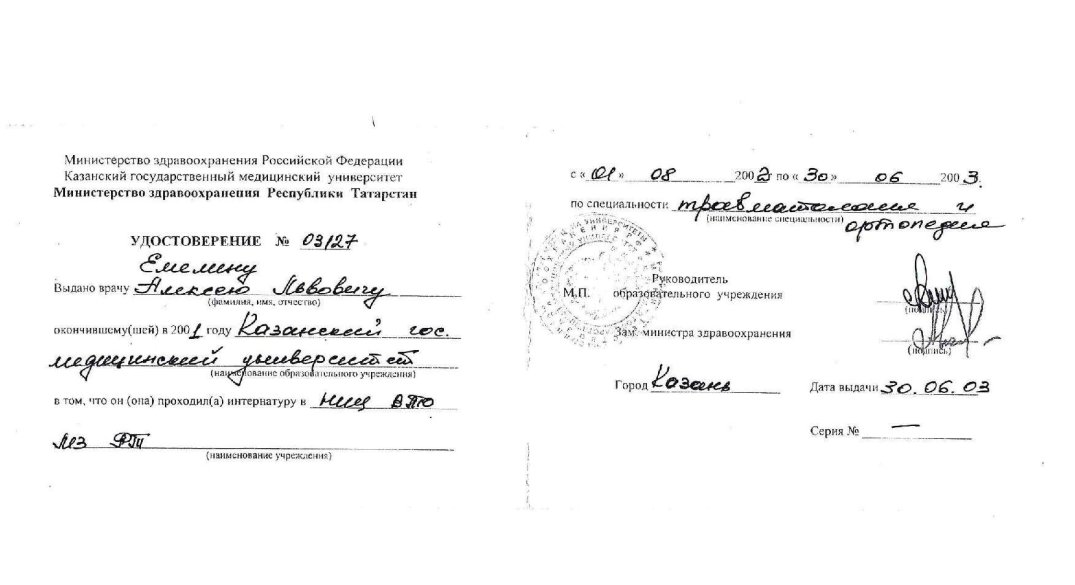 Министерство здравоохранения Российской Федерации
Казанский государственный медицинский университет
Министерство здравоохранения Республики Татарстан
УДОСТОВЕРЕНИЕ № 03/27
Емелину
Выдано врачу Алексею Львовичу
(фамилия, имя, отчество)
окончившему(шей) в 2001 году Казанский гос.
медицинский университет
(наименование образовательного учреждения)
в том, что он (она) проходил(а) интернатуру в НИЦ ВТО
МЗ
(наименование учреждения)
с «01» 08 2002 по «30» 06 2003.
по специальности травматология и
(наименование специальности)
ортопедия
Руководитель
М.П. образовательного учреждения
(подпись)
Зам. министра здравоохранения
(подпись)
Город Казань Дата выдачи 30.06.03
Серия № —